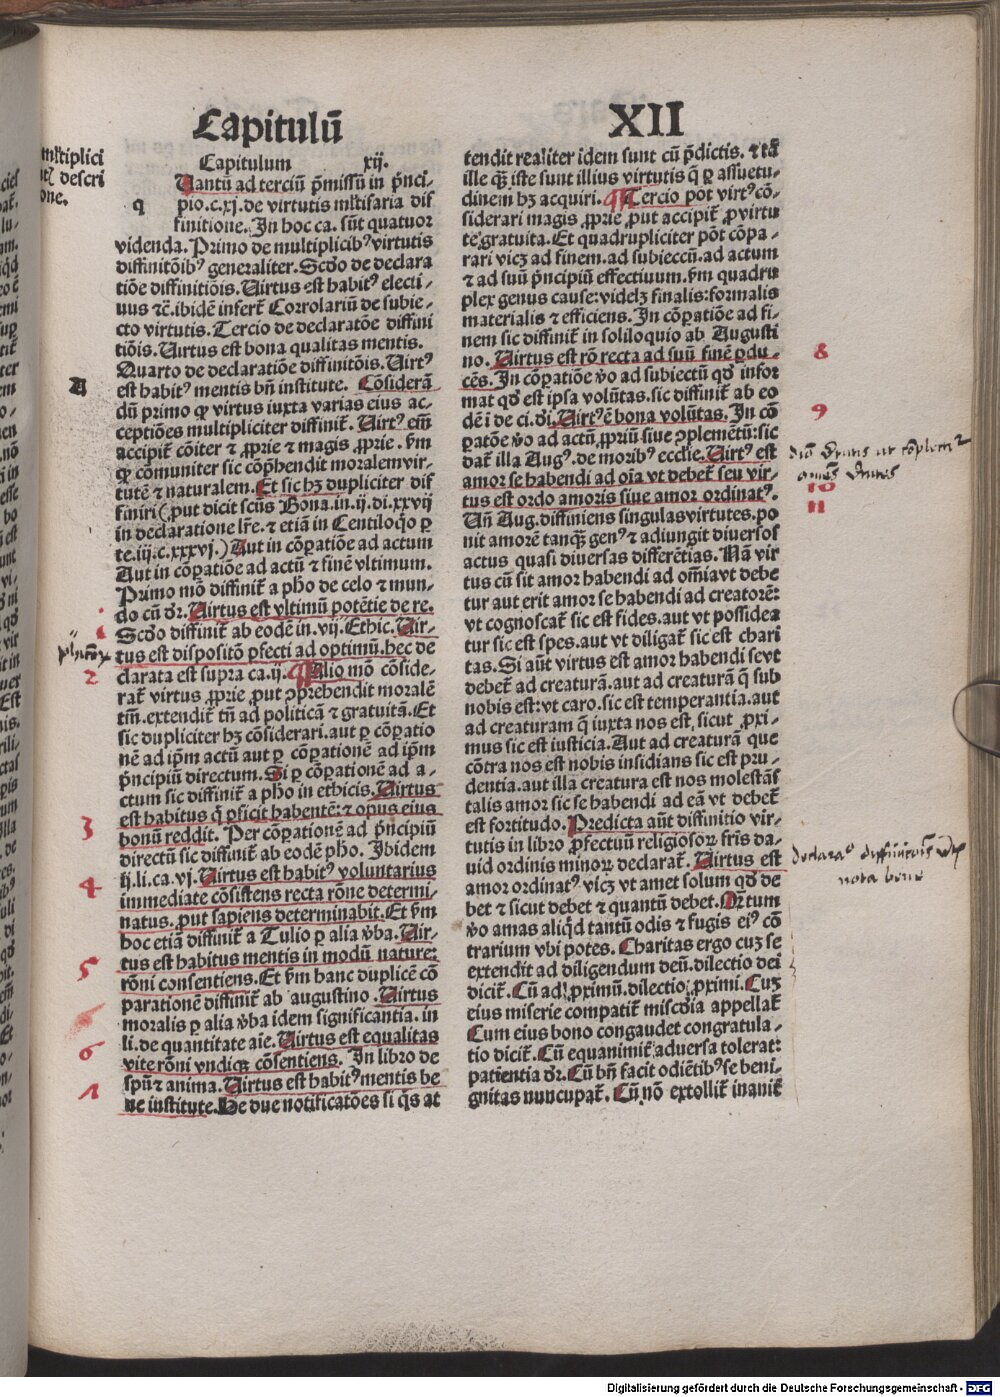 Capitulū XII
Capitulum xij.
Uantū ad terciū p̄missū in p̄nci-
pio.c.xj.de virtutis ml̄tifaria dif
finitione. In hoc ca. sūt quatuor
videnda. Primo de multiplicibꝰ virtutis
diffinitōibꝰ generaliter. Scd̄o de declara
tiōe diffinitiōis. Uirtus est habitꝰ electi-
uus ⁊c̄. ibidē infert̄ Corrolariū de subie-
cto virtutis. Tercio de declaratōe diffini
tiōis. Uirtus est bona qualitas mentis.
Quarto de declaratiōe diffinitōis. Uirtꝰ
est habitꝰ mentis bn̄ institute. Cōsiderā
dū primo ꝙ virtus iuxta varias eius ac-
ceptiões multipliciter diffinit̄. Uirtꝰ em̄
accipit̄ cōiter ⁊ ꝓprie ⁊ magis ꝓprie. Ꝟm
ꝙ cōmuniter sic cōp̄hendit moralem vir-
tutē ⁊ naturalem. Et sic hꝫ dupliciter dif
finiri (put dicit scūs Bona.in.ij.di.xxvij
in declaratione lr̄e.⁊ etiā in Centiloq̄o ꝑ
te.iij.c.xxxvj.) Aut in cōꝑatiōe ad actum
Aut in cōꝑatiōe ad actū ⁊ finē vltimum.
Primo mō diffinit̄ a ph̄o de celo ⁊ mun-
do cū dr̄. Uirtus est vltimū potētie de re.
Scd̄o diffinit̄ ab eodē in.vij.Ethic. Uir-
tus est dispositō ꝑfecti ad optimū.hec de
clarata est supra ca.ij. Alio mō cōside-
rat̄ virtus ꝓprie put ↄprehendit moralē
tm̄.extendit̄ tn̄ ad politicā ⁊ gratuitā. Et
sic dupliciter hꝫ cōsiderari.aut ꝑ cōꝑatio
nē ad ip̄m actū aut ꝑ cōꝑationē ad ip̄m
p̄ncipiū directum. Si ꝑ cōꝑationē ad a-
ctum sic diffinit̄ a ph̄o in ethicis. Uirtus
est habitus q̄ ꝑficit habentē:⁊ opus eius
bonū reddit. Per cōꝑationē ad p̄ncipiū
directū sic diffinit̄ ab eodē ph̄o. Ibidem
ij.li.ca.vj. Uirtus est habitꝰ voluntarius
immediate cōsistens recta rōne determi-
natus. put sapiens determinabit. Et ꝟm
hoc etiā diffinit̄ a Tulio ꝑ alia ꝟba. Uir-
tus est habitus mentis in modū nature:
rōni consentiens. Et ꝟm hanc duplicē cō
parationē diffinit̄ ab augustino. Uirtus
moralis ꝑ alia ꝟba idem significantia. in
li.de quantitate aīe. Uirtus est equalitas
vite rōni vndiqꝫ cōsentiens. In libro de
spū ⁊ anima. Uirtus est habitꝰ mentis be
ne institute. He due notificatōes si q̄s at
tendit realiter idem sunt cū p̄dictis.⁊ tā
ille qꝫ iste sunt illius virtutis q̄ ꝑ assuetu-
dinem hꝫ acquiri. Tercio pōt virtꝰ cō-
siderari magis ꝓprie put accipit̄ ꝓ virtu
te gratuita. Et quadrupliciter pōt cōpa-
rari vicꝫ ad finem.ad subiectū.ad actum
⁊ ad suū p̄ncipiū effectiuum.ꝟm quadru
plex genus cause:videlꝫ finalis:formalis
materialis ⁊ efficiens. In cōꝑatiōe ad fi-
nem sic diffinit̄ in soliloquio ab Augusti
no. Uirtus est rō recta ad suū finē ꝑdu-
cēs. In cōꝑatiōe ꝟo ad subiectū qd̄ infor
mat qd̄ est ipsa volūtas.sic diffinit̄ ab eo
dē i de ci.dī. Uirtꝰ ē bona volūtas. In cō
ꝑatōe ꝟo ad actū ꝓpriū siue ↄplemētū:sic
dat̄ illa Augꝰ.de moribꝰ ecclie. Uirtꝰ est
amor se habendi ad oīa vt debet̄ seu vir-
tus est ordo amoris siue amor ordinatꝰ.
Uñ Aug.diffiniens singulas virtutes.po
nit amorē tanqꝫ genꝰ ⁊ adiungit diuersos
actus quasi diuersas differētias. Nā vir
tus cū sit amor habendi ad om̄ia vt debe
tur aut erit amor se habendi ad creatorē:
vt cognoscat̄ sic est fides.aut vt possidea
tur sic est spes.aut vt diligat̄ sic est chari
tas. Si aūt virtus est amor habendi se vt
debet̄ ad creaturā.aut ad creaturā q̄ sub
nobis est:vt caro.sic est temperantia.aut
ad creaturam q̄ iuxta nos est, sicut ꝓxi-
mus sic est iusticia. Aut ad creaturā que
cōtra nos est nobis insidians sic est pru-
dentia.aut illa creatura est nos molestās
talis amor sic se habendi ad eā vt debet̄
est fortitudo. Predicta aūt diffinitio vir-
tutis in libro ꝓfectuū religiosoꝝ fr̄is da-
uid ordinis minoꝝ declarat̄. Uirtus est
amor ordinatꝰ vicꝫ vt amet solum qd̄ de
bet ⁊ sicut debet ⁊ quantū debet. Qr̄ tum
ꝟo amas aliq̄d tantū odis ⁊ fugis eiꝰ cō
trarium vbi potes. Charitas ergo cuꝫ se
extendit ad diligendum deū.dilectio dei
dicit̄. Cū ad ꝓximū.dilectio ꝓximi. Cuꝫ
eius miserie compatit̄ miscd̄ia appellat̄
Cum eius bono congaudet congratula-
tio dicit̄. Cū equanimit̄ aduersa tolerat:
patientia dr̄. Cū bn̄ facit odiētibꝰ se beni-
gnitas nuncupat̄. Cū nō extollit̄ inanit̄
ml̄tiplici
descri
one.
q
A
1
2
3
4
5
6
8
9
10
11
nota bene
Digitalisierung gefördert durch die Deutsche Forschungsgemeinschaft - DFG